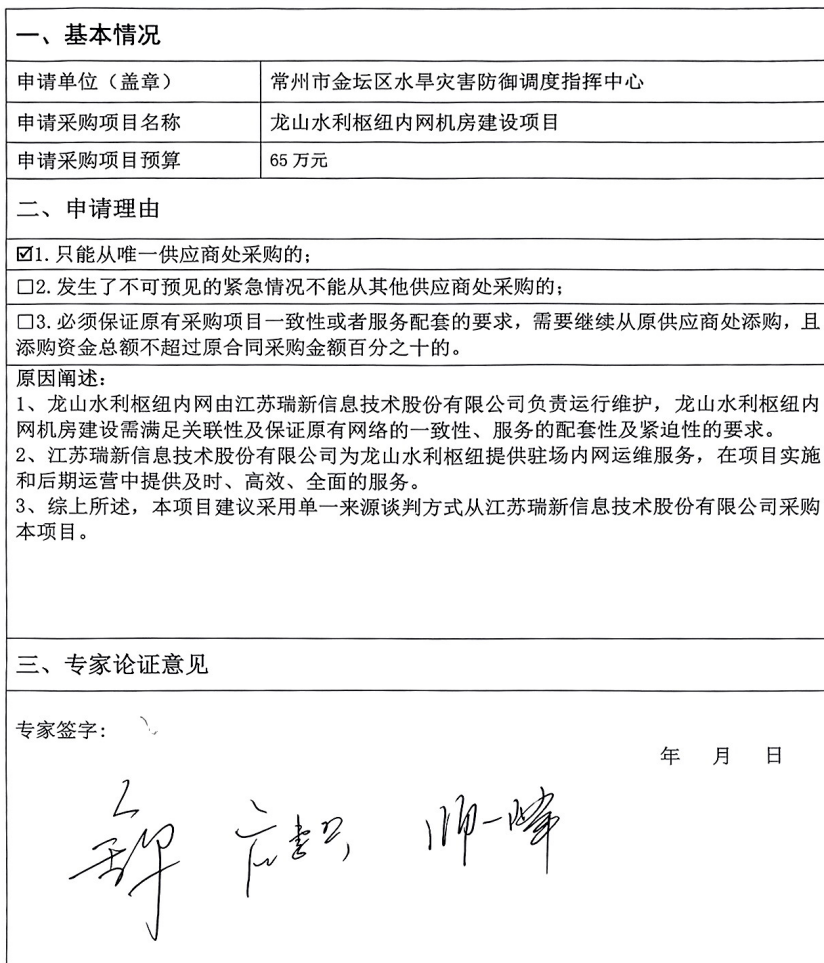 一、基本情况
申请单位（盖章） 常州市金坛区水旱灾害防御调度指挥中心
申请采购项目名称 龙山水利枢纽内网机房建设项目
申请采购项目预算 65 万元
二、申请理由
☑1. 只能从唯一供应商处采购的；
□2. 发生了不可预见的紧急情况不能从其他供应商处采购的；
□3. 必须保证原有采购项目一致性或者服务配套的要求，需要继续从原供应商处添购，且
添购资金总额不超过原合同采购金额百分之十的。
原因阐述：
1、龙山水利枢纽内网由江苏瑞新信息技术股份有限公司负责运行维护，龙山水利枢纽内
网机房建设需满足关联性及保证原有网络的一致性、服务的配套性及紧迫性的要求。
2、江苏瑞新信息技术股份有限公司为龙山水利枢纽提供驻场内网运维服务，在项目实施
和后期运营中提供及时、高效、全面的服务。
3、综上所述，本项目建议采用单一来源谈判方式从江苏瑞新信息技术股份有限公司采购
本项目。
三、专家论证意见
专家签字：
年 月 日